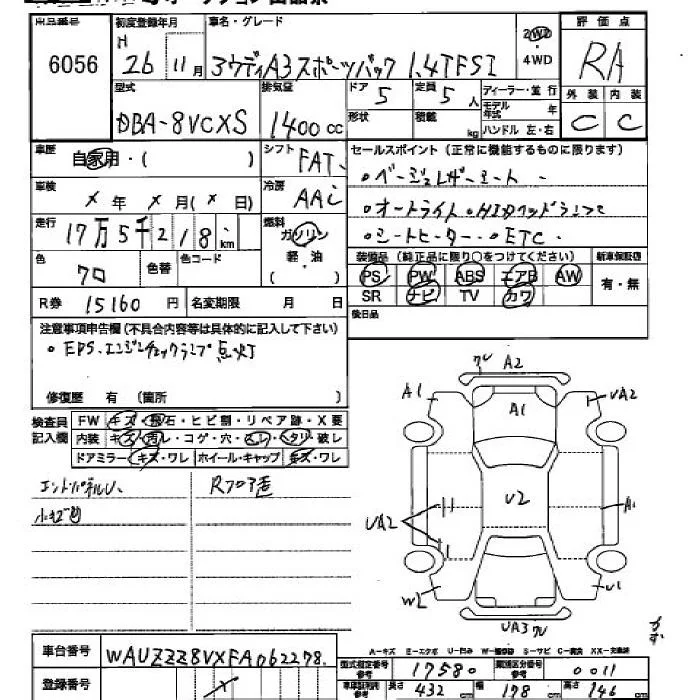 出品番号 初度登録年月 車名・グレード 評価点
6056 H 26 11月 アウディA3スポーツバック 1.4TFSI 2WD ・ 4WD RA
型式 排気量 ドア 5 定員 5人 ディーラー・並行 外装 内装
DBA-8VCXS 1400cc 形状 積載 kg モデル年式 年 ハンドル 左・右 C C
車歴 自家用・( ) シフト FAT セールスポイント (正常に機能するものに限ります)
車検 × 年 × 月 (× 日) 冷房 AAC ・ベージュレザーシート
走行 17万5千218 km 燃料 ガソリン ・オートライト・HIDヘッドライト
色 クロ 色替 色コード 軽・油 ( ) ・シートヒーター・ETC
装備品 (純正品に限り○をつけてください) 新車保証書
PS PW ABS エアB AW 有・無
SR ナビ TV カワ
R券 15160 円 名変期限 月 日 後日品
注意事項申告欄 (不具合内容等は具体的に記入して下さい)
・EPS.エンジンチェックランプ点灯
修復歴 有 (箇所 )
検査員記入欄 FW キズ・飛石・ヒビ割・リペア跡・X要
内装 キズ・汚レ・コゲ・穴・スレ・ヘタリ・破レ
ドアミラー・キズ・ワレ ホイール・キャップ キズ・ワレ
エンドパネルU、 Rフロア歪
小キズ凹
クレ A2
A1 A1 UA2
UA2 U2 A1
W2 U1
UA3
A-キズ E-エクボ U-凹み W-補修跡 S-サビ C-腐食 XX-交換済
車台番号 WAUZZZ8VXFA062278. 型式指定番号 参考 17580 類別区分番号 参考 0011
登録番号 車検証 参考 長さ 432 cm 幅 178 cm 高さ 146 cm